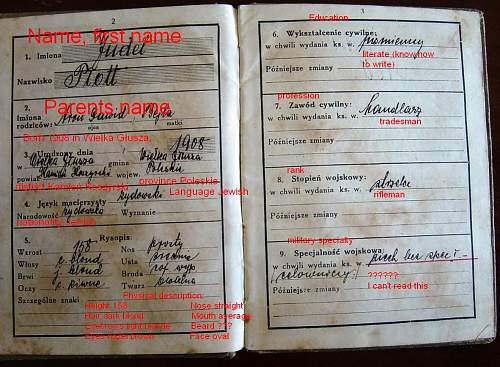 2
Name, first name
1. Imiona Judel
Nazwisko Plott
Parents name
2. Imiona rodziców: Aron Dawid, Bejla
ojca matki
Born 1908 in Wielka Głusza,
3. Urodzony dnia 1908
w Wielka Głusza gmina Wielka Głusza
powiat Kamień Koszyrski wojew. Poleskie
district Kamień Koszyrski province Poleskie
4. Język macierzysty żydowski
Language Jewish
Narodowość żydowska Wyznanie
nationality Jewish
5. Rysopis:
Wzrost 158 Nos prosty
Włosy c. blond Usta średnie
Brwi j. blond Broda
Oczy c. piwne Twarz owalna
Szczególne znaki
Physical description:
Height 158 Nose straight
Hair dark blond Mouth average
Eyebrows light blonde Beard ???
Eyes hazel brown Face oval
3
Education
6. Wykształcenie cywilne:
w chwili wydania ks. w. piśmienny
literate (know how to write)
Późniejsze zmiany
profession
7. Zawód cywilny:
w chwili wydania ks. w. handlarz
tradesman
Późniejsze zmiany
rank
8. Stopień wojskowy:
w chwili wydania ks. w. strzelec
rifleman
Późniejsze zmiany
military specialty
9. Specjalność wojskowa:
w chwili wydania ks. w. piech. bez spec.
(celowniczy)
??????
Późniejsze zmiany
I can't read this